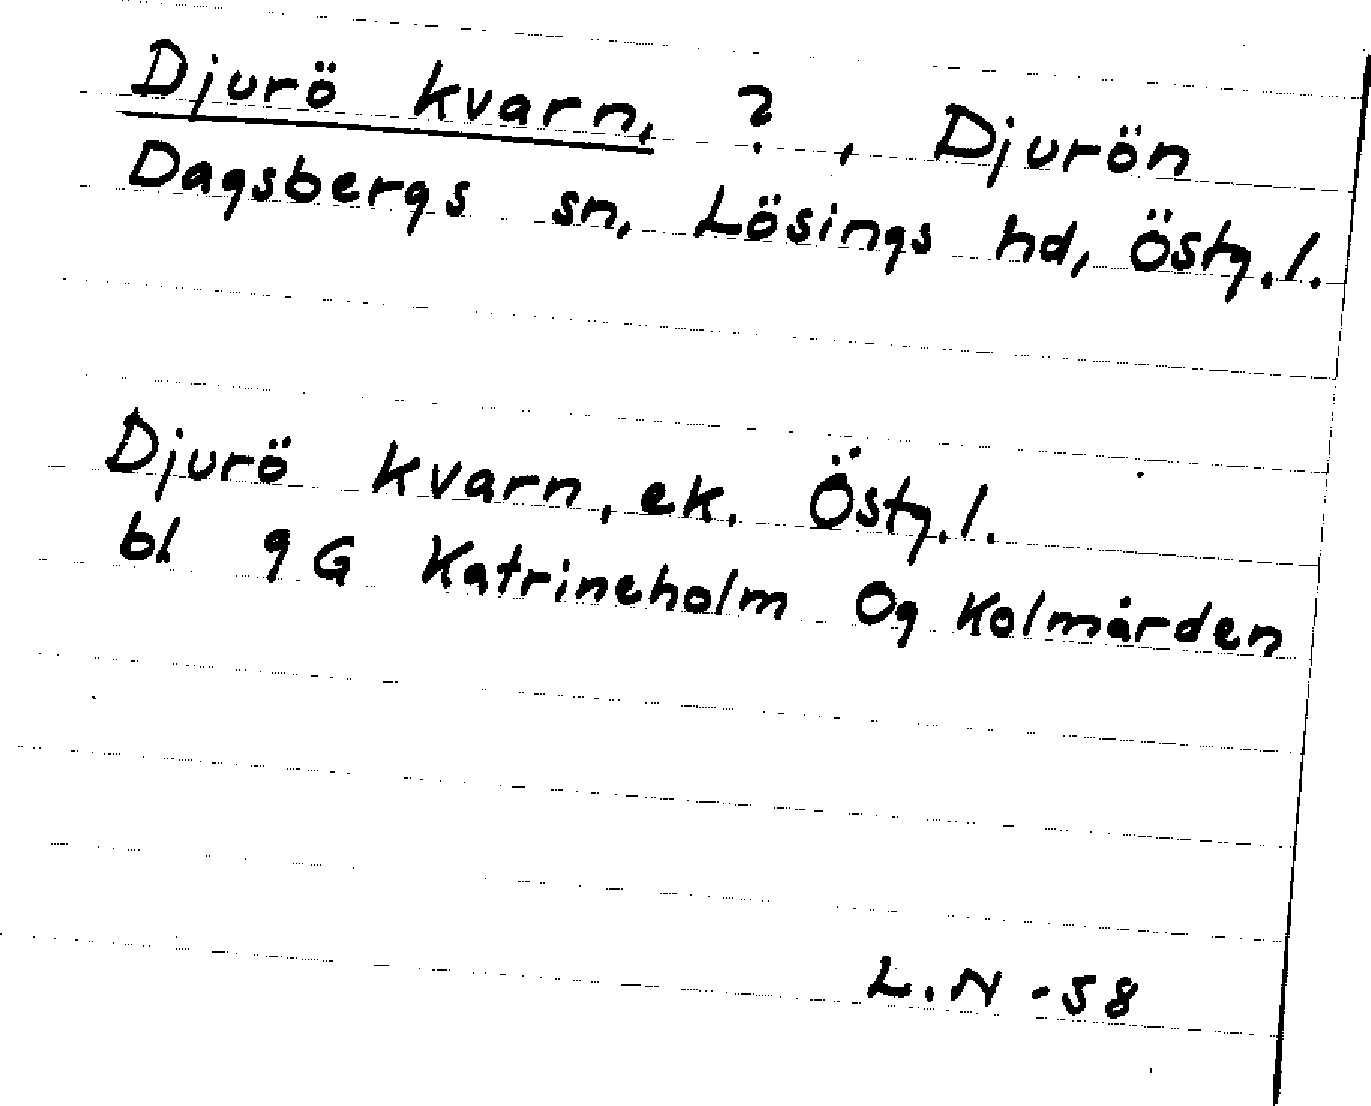 Djurö kvarn, ?, Djurön
Dagsbergs sn, Lösings hd, Östg.l.
Djurö kvarn, ek. Östg.l.
bl 9G Katrineholm Og Kolmården
L.N -58